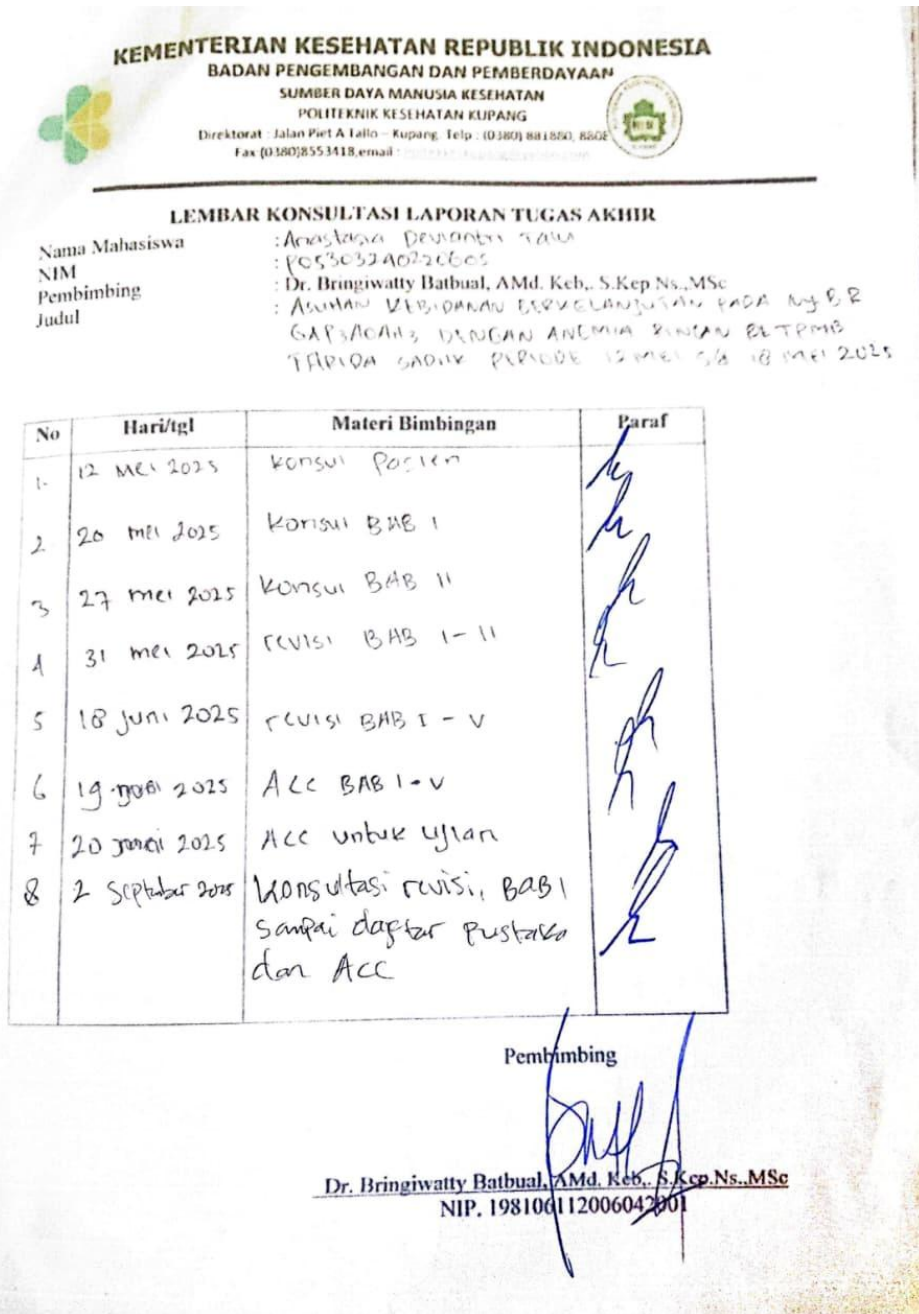 KEMENTERIAN KESEHATAN REPUBLIK INDONESIA
BADAN PENGEMBANGAN DAN PEMBERDAYAAN
SUMBER DAYA MANUSIA KESEHATAN
POLITEKNIK KESEHATAN KUPANG
Direktorat : Jalan Piet A Tallo – Kupang, Telp : (0380) 881880,
Fax (0380)8553418,email :
LEMBAR KONSULTASI LAPORAN TUGAS AKHIR
Nama Mahasiswa : Anastasia Deviantri
NIM : PO5303240220605
Pembimbing : Dr. Bringiwatty Batbual, AMd. Keb,. S.Kep Ns.,MSc
Judul : ASUHAN KEBIDANAN BERKELANJUTAN PADA Ny B R
DENGAN ANEMIA RINGAN
PERIODE 12 MEI S/d 18 MEI 2025
No Hari/tgl Materi Bimbingan Paraf
1. 12 Mei 2025 konsul Pasien
2 20 mei 2025 Konsul BAB I
3 27 mei 2025 Konsul BAB II
4 31 mei 2025 revisi BAB I-II
5 18 juni 2025 revisi BAB I - V
6 19 2025 Acc BAB I-V
7 20 2025 Acc untuk ujian
8 2 September 2025 Konsultasi revisi, BAB I
sampai daftar pustaka
dan Acc
Pembimbing
Dr. Bringiwatty Batbual, AMd. Keb,. S.Kep.Ns.,MSc
NIP. 198106112006042001